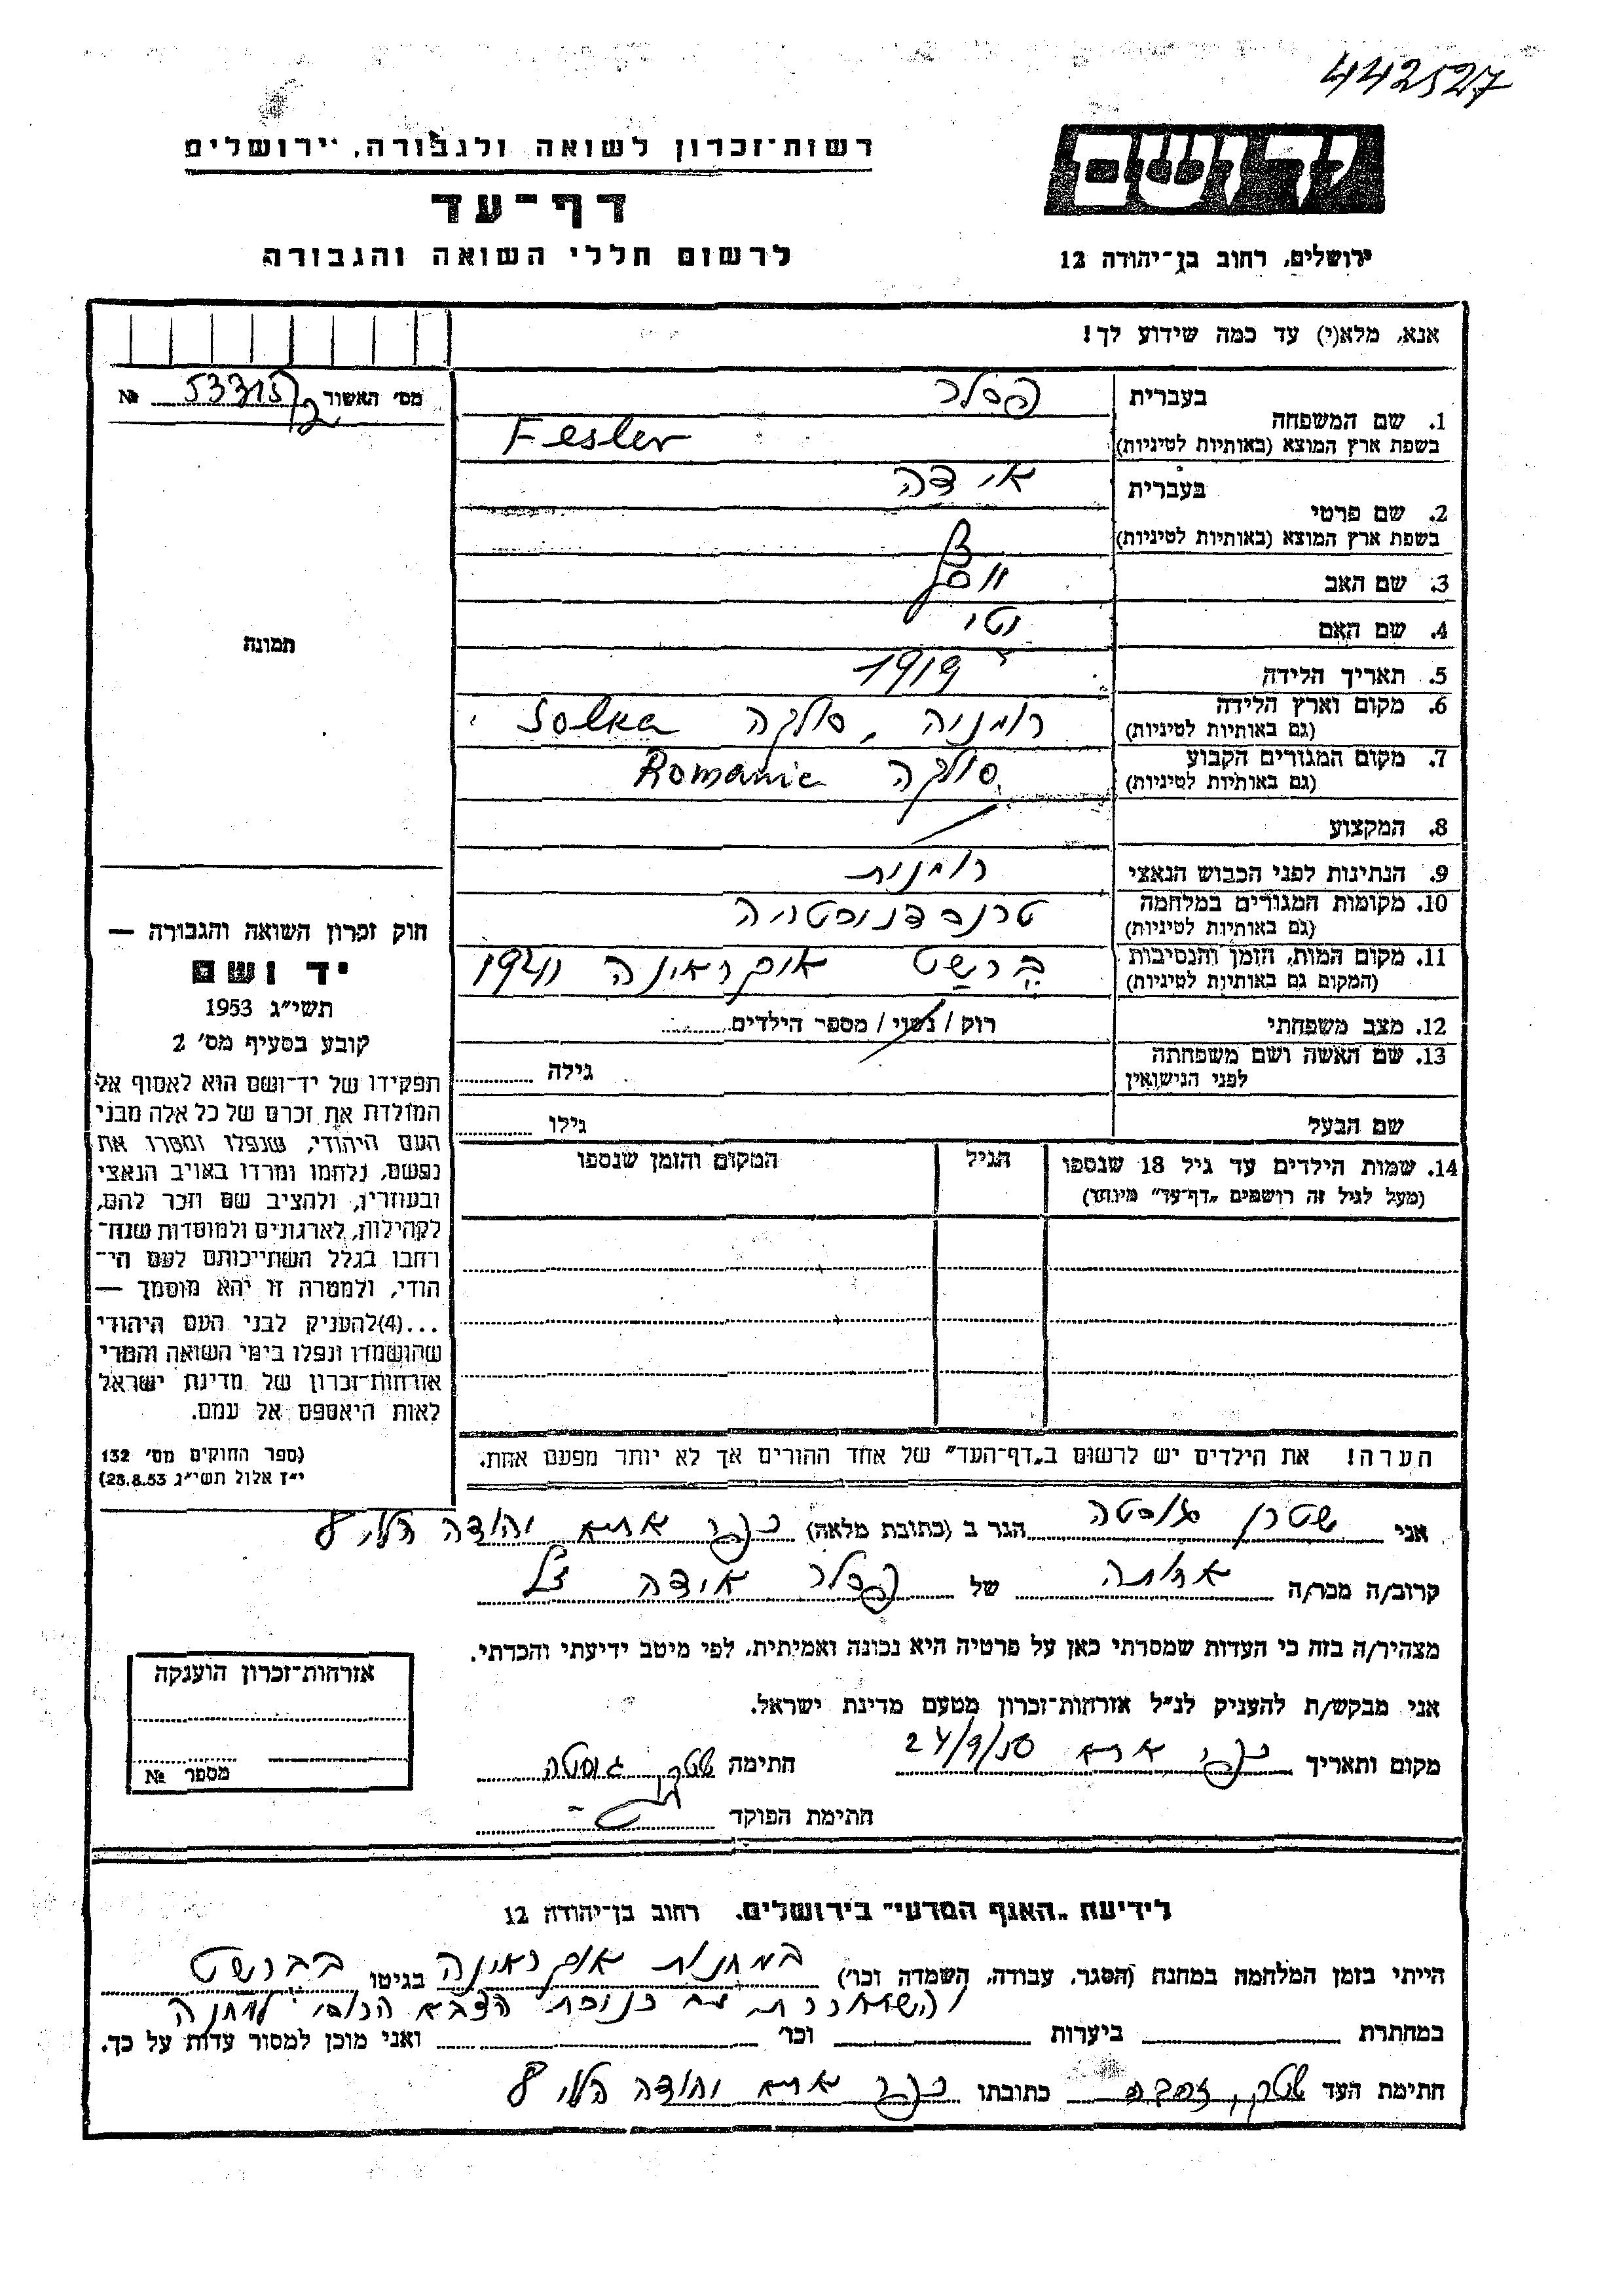 442527
רשות־זכרון לשואה ולגבורה, ירושלים
דף־עד
לרשום חללי השואה והגבורה
יד ושם
ירושלים, רחוב בן־יהודה 12
אנא, מלא(י) עד כמה שידוע לך!
מס׳ האשור № 53315/2
תמונה
בעברית פסלר
1. שם המשפחה
בשפת ארץ המוצא (באותיות לטיניות) Fesler
בעברית אידה
2. שם פרטי
בשפת ארץ המוצא (באותיות לטיניות)
3. שם האב יוסף
4. שם האם נטי
5. תאריך הלידה 1919
6. מקום וארץ הלידה רומניה, סולקה Solka
(גם באותיות לטיניות)
7. מקום המגורים הקבוע סולקה Romanie
(גם באותיות לטיניות)
8. המקצוע
9. הנתינות לפני הכבוש הנאצי רומנית
10. מקומות המגורים במלחמה טרנסדניסטריה
(גם באותיות לטיניות)
11. מקום המות, הזמן והנסיבות ברשט אוקראינה 1941
(המקום גם באותיות לטיניות)
12. מצב משפחתי רוק / נשוי / מספר הילדים
13. שם האשה ושם משפחתה גילה
לפני הנישואין
שם הבעל גילו
14. שמות הילדים עד גיל 18 שנספו הגיל המקום והזמן שנספו
(מעל לגיל זה רושמים „דף־עד״ מיוחד)
חוק זכרון השואה והגבורה —
יד ושם
תשי״ג 1953
קובע בסעיף מס׳ 2
תפקידו של יד־ושם הוא לאסוף אל
המולדת את זכרם של כל אלה מבני
העם היהודי, שנפלו ומסרו את
נפשם, נלחמו ומרדו באויב הנאצי
ובעוזריו, ולהציב שם וזכר להם,
לקהילות, לארגונים ולמוסדות שנח־
רחבו בגלל השתייכותם לעם הי־
הודי, ולמטרה זו יהא מוסמך —
...(4)להעניק לבני העם היהודי
שהושמדו ונפלו בימי השואה והמרי
אזרחות־זכרון של מדינת ישראל
לאות היאספם אל עמם.
(ספר החוקים מס׳ 132
י״ז אלול תשי״ג 28.8.53)
הערה! את הילדים יש לרשום ב„דף־העד״ של אחד ההורים אך לא יותר מפעם אחת.
אני שטרן גוסטה הגר ב (כתובת מלאה) כפר אתא יהודה הלוי 8
קרוב/ה מכר/ה אחותה של פסלר אידה ז״ל
מצהיר/ה בזה כי העדות שמסרתי כאן על פרטיה היא נכונה ואמיתית, לפי מיטב ידיעתי והכרתי.
אני מבקש/ת להעניק לנ״ל אזרחות־זכרון מטעם מדינת ישראל.
מקום ותאריך כפר אתא 24/9/56 חתימה שטרן גוסטה
חתימת הפוקד
אזרחות־זכרון הוענקה
מספר №
לידיעת „האגף המדעי״ בירושלים, רחוב בן־יהודה 12
הייתי בזמן המלחמה במחנה (הסגר, עבודה, השמדה וכו׳) במחנות אוקראינה בגיטו בברשט
במחתרת ביערות וכו׳ ואני מוכן למסור עדות על כך.
חתימת העד שטרן גוסטה כתובתו כפר אתא יהודה הלוי 8